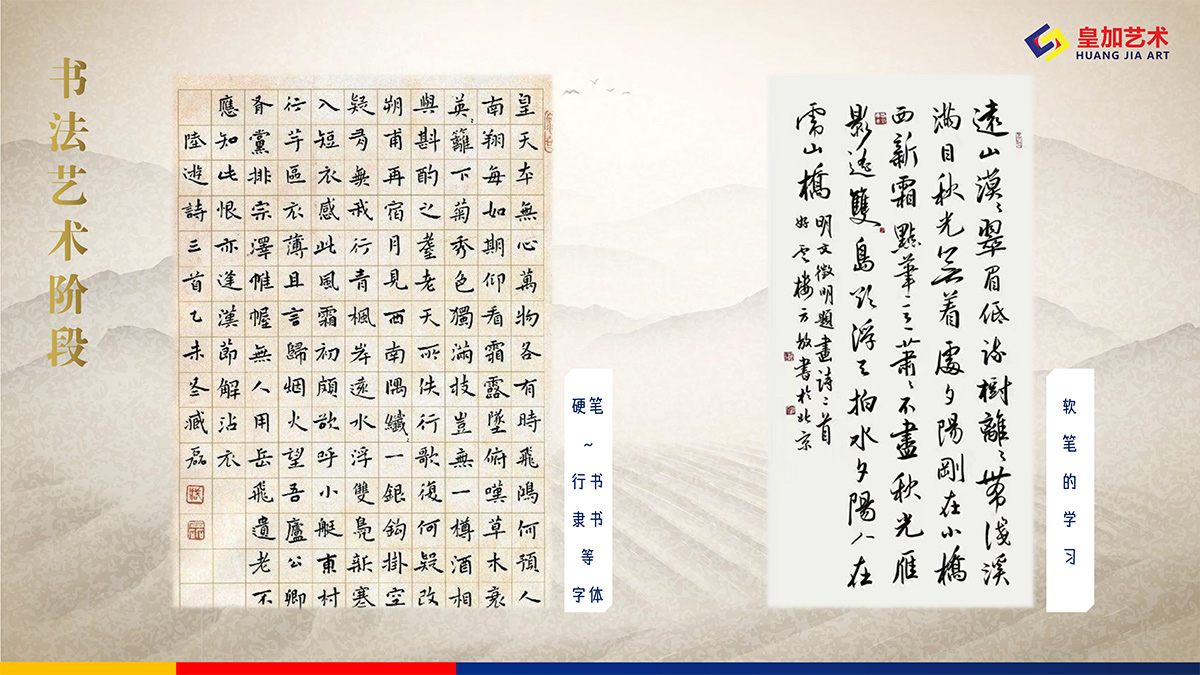 书法艺术阶段
皇加艺术
HUANG JIA ART
皇天本無心萬物各有時飛鴻何預人
南翔每如期仰看霜露墜俯嘆草木衰
英〻籬下菊秀色獨滿枝豈無一樽酒相
與斟酌之耋老天所佚行歌復何疑改
朔甫再宿月見西南隅纖〻一銀鈎掛空
疑有無我行青楓岸遠水浮雙鳧新寒
入短衣感此風霜初頗欲呼小艇東村
行芋區衣薄且言歸烟火望吾廬公卿
有黨排宗澤帷幄無人用岳飛遺老不
應知此恨亦逢漢節解沾衣
陸遊詩三首乙未冬臧磊
硬笔
~
行书
隶书
等
字体
遠山漠〻翠眉低疏樹離〻帶淺溪
滿目秋光無着處夕陽剛在小橋
西新霜點筆意蕭〻不盡秋光雁
影遙雙島 浮天拍水夕陽人在
山橋
明文徵明題畫詩二首
好雲樓方放書於北京
软笔的学习